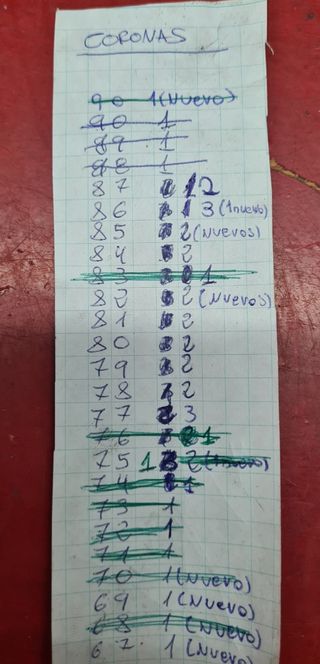 CORONAS
90 1 (Nuevo)
90 1
89 1
88 1
87 12
86 1 3 (1nuevo)
85 2 (Nuevos)
84 2
83 1
82 2 (Nuevos)
81 2
80 2
79 2
78 2
77 3
76 1
75 1 2 (1nuevo)
74 1
73 1
72 1
71 1
70 1 (Nuevo)
69 1 (Nuevo)
68 1 (Nuevo)
67. 1 (Nuevo)